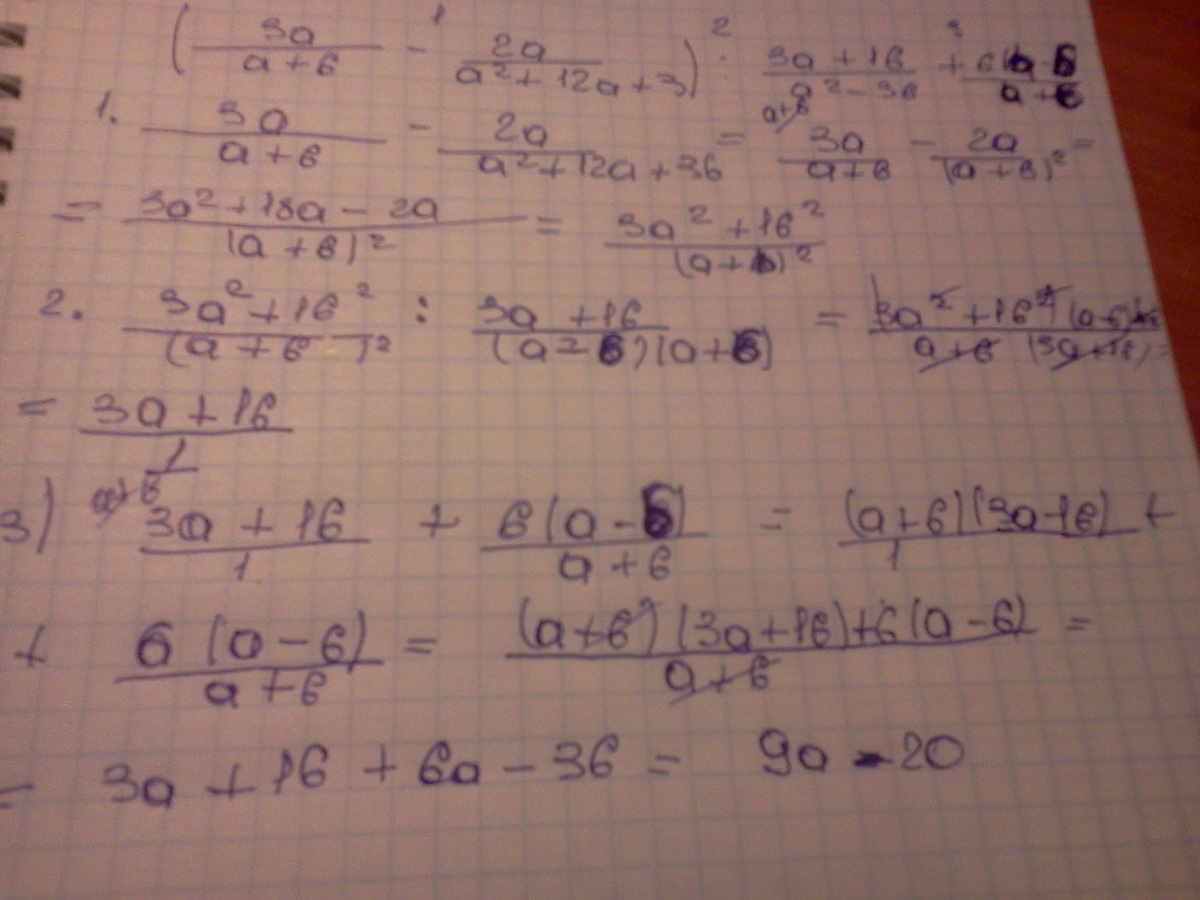 (3a/(a+6) -¹ 2a/(a²+12a+3)) :² (3a+16)/(a²-36) +³ 6(a-6)/(a+6)
1. 3a/(a+6) - 2a/(a²+12a+36) = a+6/ 3a/(a+6) - 2a/(a+6)² =
= (3a²+18a-2a)/(a+6)² = (3a²+16²)/(a+6)²
2. (3a²+16²)/(a+6)² : (3a+16)/((a-6)(a+6)) =
= (3a+16)/1
3) a+6/ (3a+16)/1 + 6(a-6)/(a+6) = (a+6)(3a+16)/1 +
+ 6(a-6)/(a+6) = ((a+6)(3a+16)+6(a-6))/(a+6) =
= 3a+16+6a-36 = 9a-20